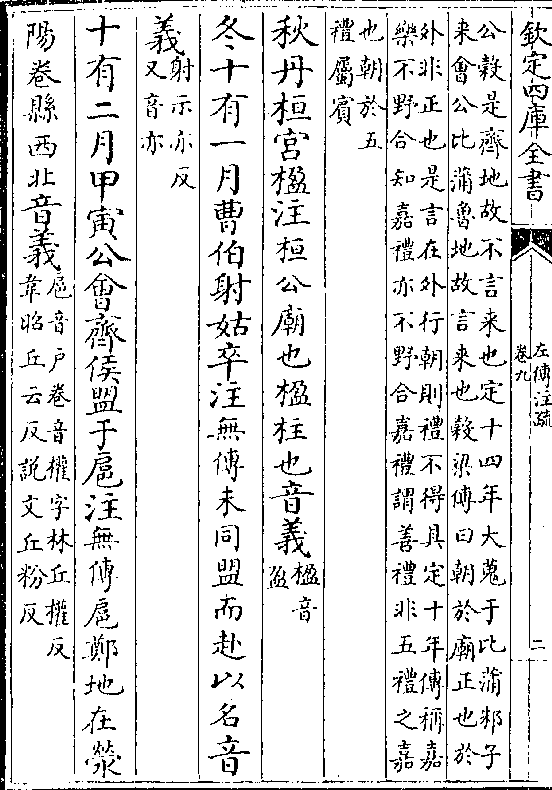 欽定四庫全書
左傳注疏
卷九
二
公穀是齊地故不言来也定十四年大蒐于比蒲邾子
来會公比蒲魯地故言来也穀梁傳曰朝於廟正也於
外非正也是言在外行朝則禮不得具定十年傳稱嘉
樂不野合知嘉禮亦不野合嘉禮謂善禮非五禮之嘉
也朝於五
禮屬賓
秋丹桓宮楹注桓公廟也楹柱也音義楹音
盈
冬十有一月曹伯射姑卒注無傳未同盟而赴以名音
義射示亦反
又音亦
十有二月甲寅公會齊侯盟于扈注無傳扈鄭地在滎
陽卷縣西北音義扈音户卷音權字林丘權反
韋昭丘云反說文丘粉反